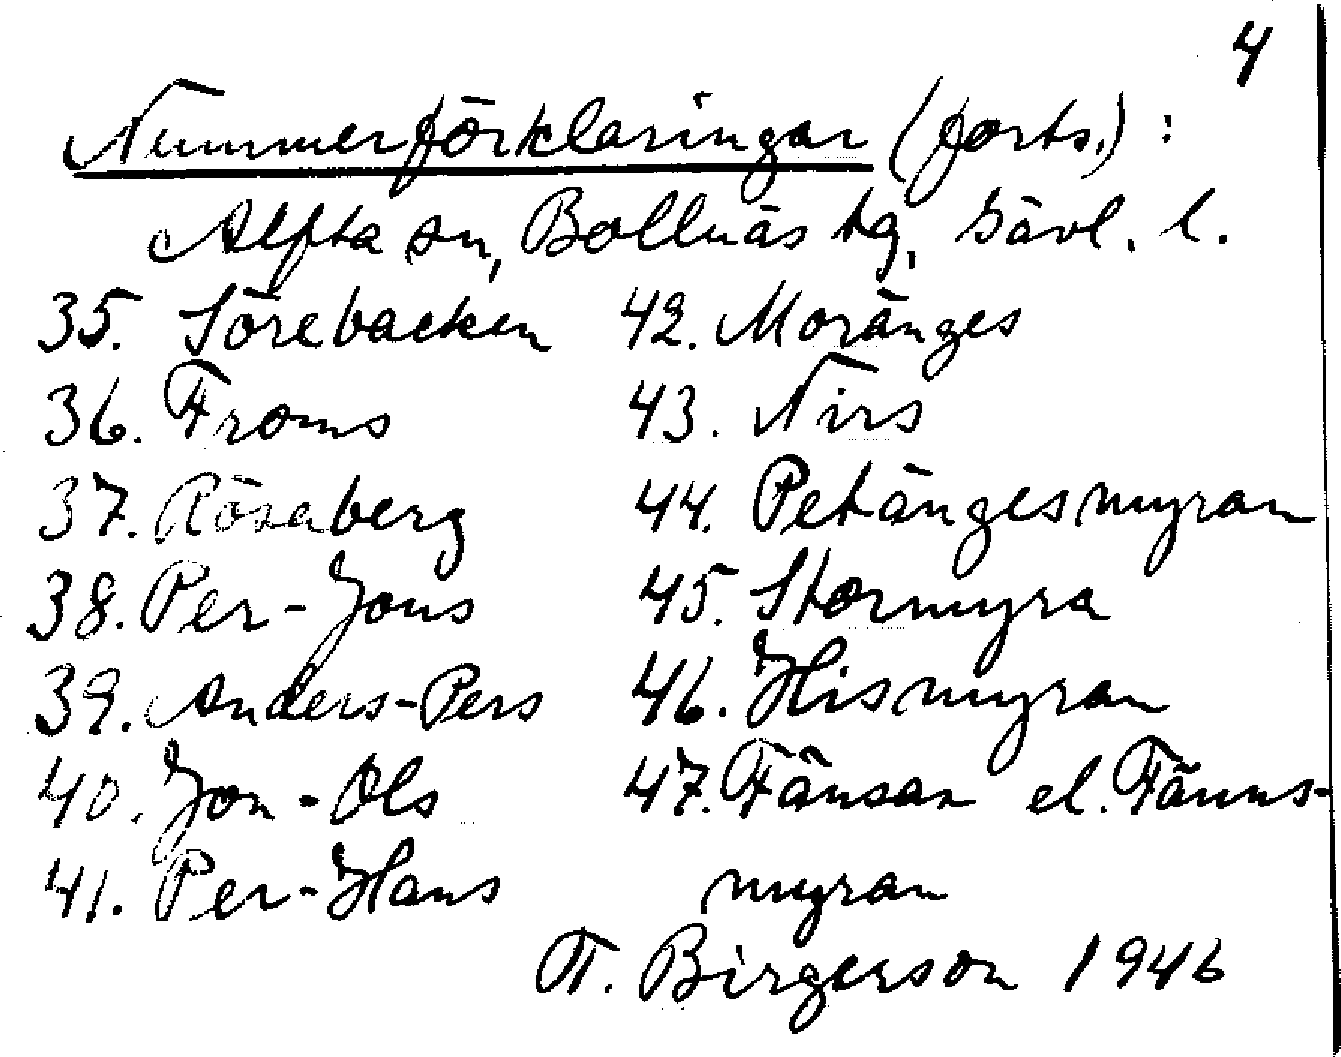 4
Nummerförklaringar (forts.) :
Alfta sn, Bollnäs tg, Gävl. l.
35. Sörebacken
36. Froms
37. Rösaberg
38. Per-Jons
39. Anders-Pers
40. Jon-Ols
41. Per-Hans
42. Moränges
43. Nirs
44. Petängesmyran
45. Stormyra
46. Hismyran
47. Fänsan el. Fänns-
myran
T. Birgerson 1946